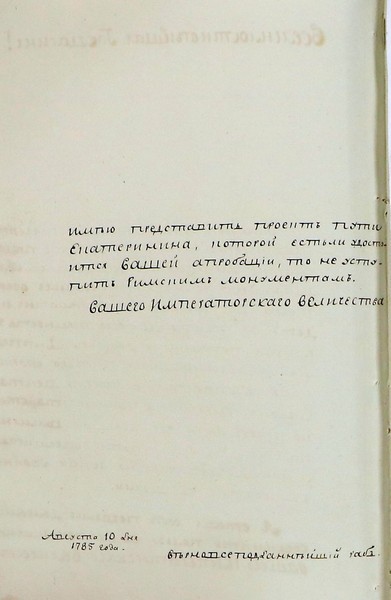 Имѣю представить проектъ пути
Екатеринина, которой естьли удосто
ится вашей апробаціи, то не усту
питъ Римскимъ монументамъ.
вашего Императорскаго величества
Августа 10 дня
1785 года.
вѣрноподданнѣйшій рабъ